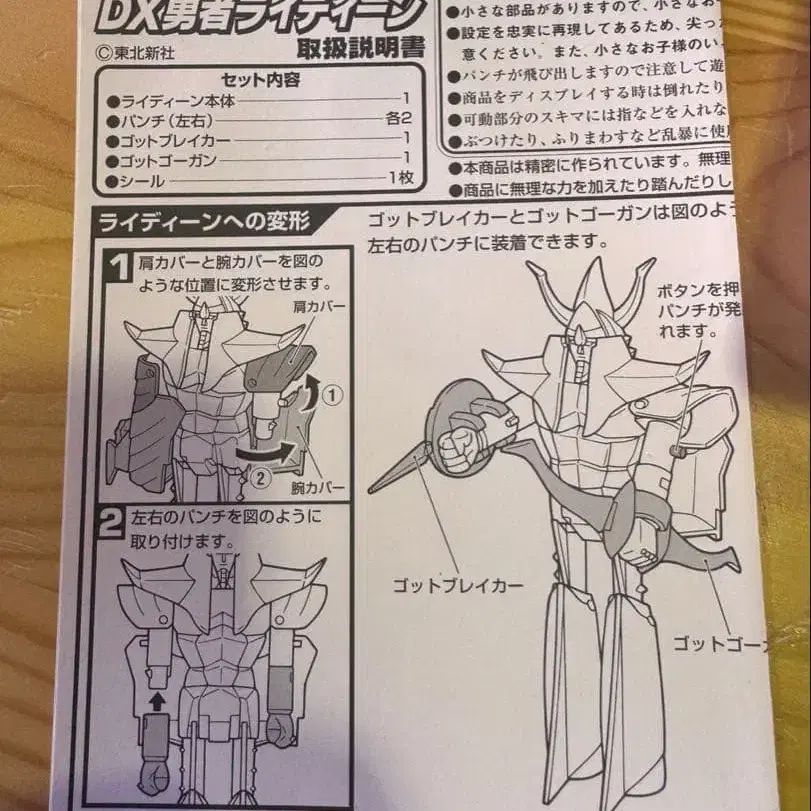 DX勇者ライディーン
取扱説明書
©東北新社
セット内容
●ライディーン本体 1
●パンチ(左右) 各2
●ゴットブレイカー 1
●ゴットゴーガン 1
●シール 1枚
●小さな部品がありますので、小さなお
●設定を忠実に再現してあるため、尖っ
意ください。また、小さなお子様のい
●パンチが飛び出しますので注意して遊
●商品をディスプレイする時は倒れたり
●可動部分のスキマには指などを入れな
●ぶつけたり、ふりまわすなど乱暴に使
●本商品は精密に作られています。無理
●商品に無理な力を加えたり踏んだりし
ライディーンへの変形
1 肩カバーと腕カバーを図の
ような位置に変形させます。
肩カバー
①
②
腕カバー
2 左右のパンチを図のように
取り付けます。
ゴットブレイカーとゴットゴーガンは図のよ
左右のパンチに装着できます。
ボタンを押
パンチが発
れます。
ゴットブレイカー
ゴットゴー